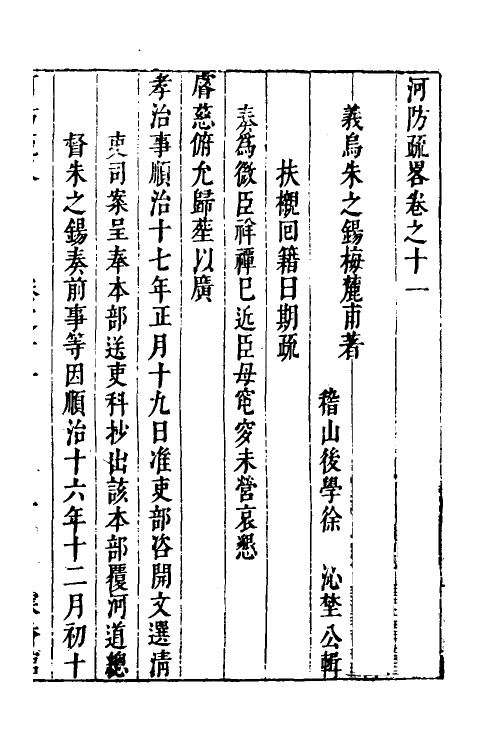 河防疏畧卷之十一
義烏朱之錫梅麓甫著
稽山後學徐　沁埜公輯
扶櫬回籍日期疏
奏為微臣祥禫已近臣母窀穸未營哀懇
睿慈俯允歸塟以廣
孝治事順治十七年正月十九日准吏部咨開文選清
吏司案呈奉本部送吏科抄出該本部覆河道總
督朱之錫奏前事等因順治十六年十二月初十